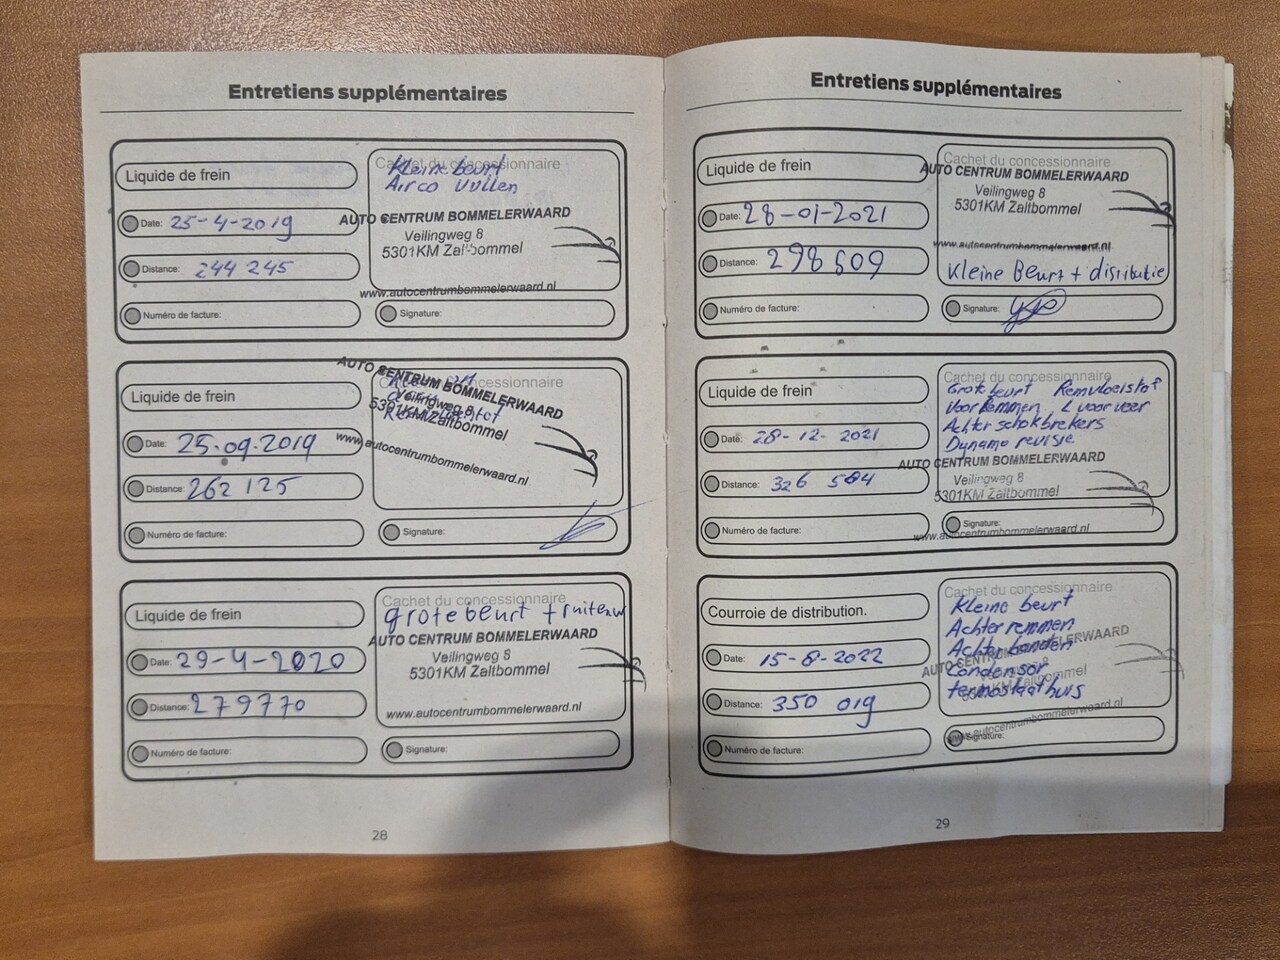 Entretiens supplémentaires
Liquide de frein
Cachet du concessionnaire
Kleine beurt
Airco vullen
AUTO CENTRUM BOMMELERWAARD
Veilingweg 8
5301KM Zaltbommel
www.autocentrumbommelerwaard.nl
Date: 25-4-2019
Distance: 244 245
Numéro de facture:
Signature:
Liquide de frein
Cachet du concessionnaire
AUTO CENTRUM BOMMELERWAARD
Veilingweg 8
5301KM Zaltbommel
www.autocentrumbommelerwaard.nl
Date: 25-09-2019
Distance: 262 125
Numéro de facture:
Signature:
Liquide de frein
Cachet du concessionnaire
grote beurt + ruitenw
AUTO CENTRUM BOMMELERWAARD
Veilingweg 8
5301KM Zaltbommel
www.autocentrumbommelerwaard.nl
Date: 29-4-2020
Distance: 279770
Numéro de facture:
Signature:
28
Entretiens supplémentaires
Liquide de frein
Cachet du concessionnaire
AUTO CENTRUM BOMMELERWAARD
Veilingweg 8
5301KM Zaltbommel
www.autocentrumbommelerwaard.nl
Kleine Beurt + distributie
Date: 28-01-2021
Distance: 298 609
Numéro de facture:
Signature:
Liquide de frein
Cachet du concessionnaire
Grote beurt Remvloeistof
Voor remmen L voor veer
Achter schokbrekers
Dynamo revisie
AUTO CENTRUM BOMMELERWAARD
Veilingweg 8
5301KM Zaltbommel
www.autocentrumbommelerwaard.nl
Date: 28-12-2021
Distance: 326 584
Numéro de facture:
Signature:
Courroie de distribution.
Cachet du concessionnaire
Kleine beurt
Achter remmen
Achter banden
Condensor
termostaathuis
AUTO CENTRUM BOMMELERWAARD
Veilingweg 8
5301KM Zaltbommel
www.autocentrumbommelerwaard.nl
Date: 15-8-2022
Distance: 350 019
Numéro de facture:
Signature:
29